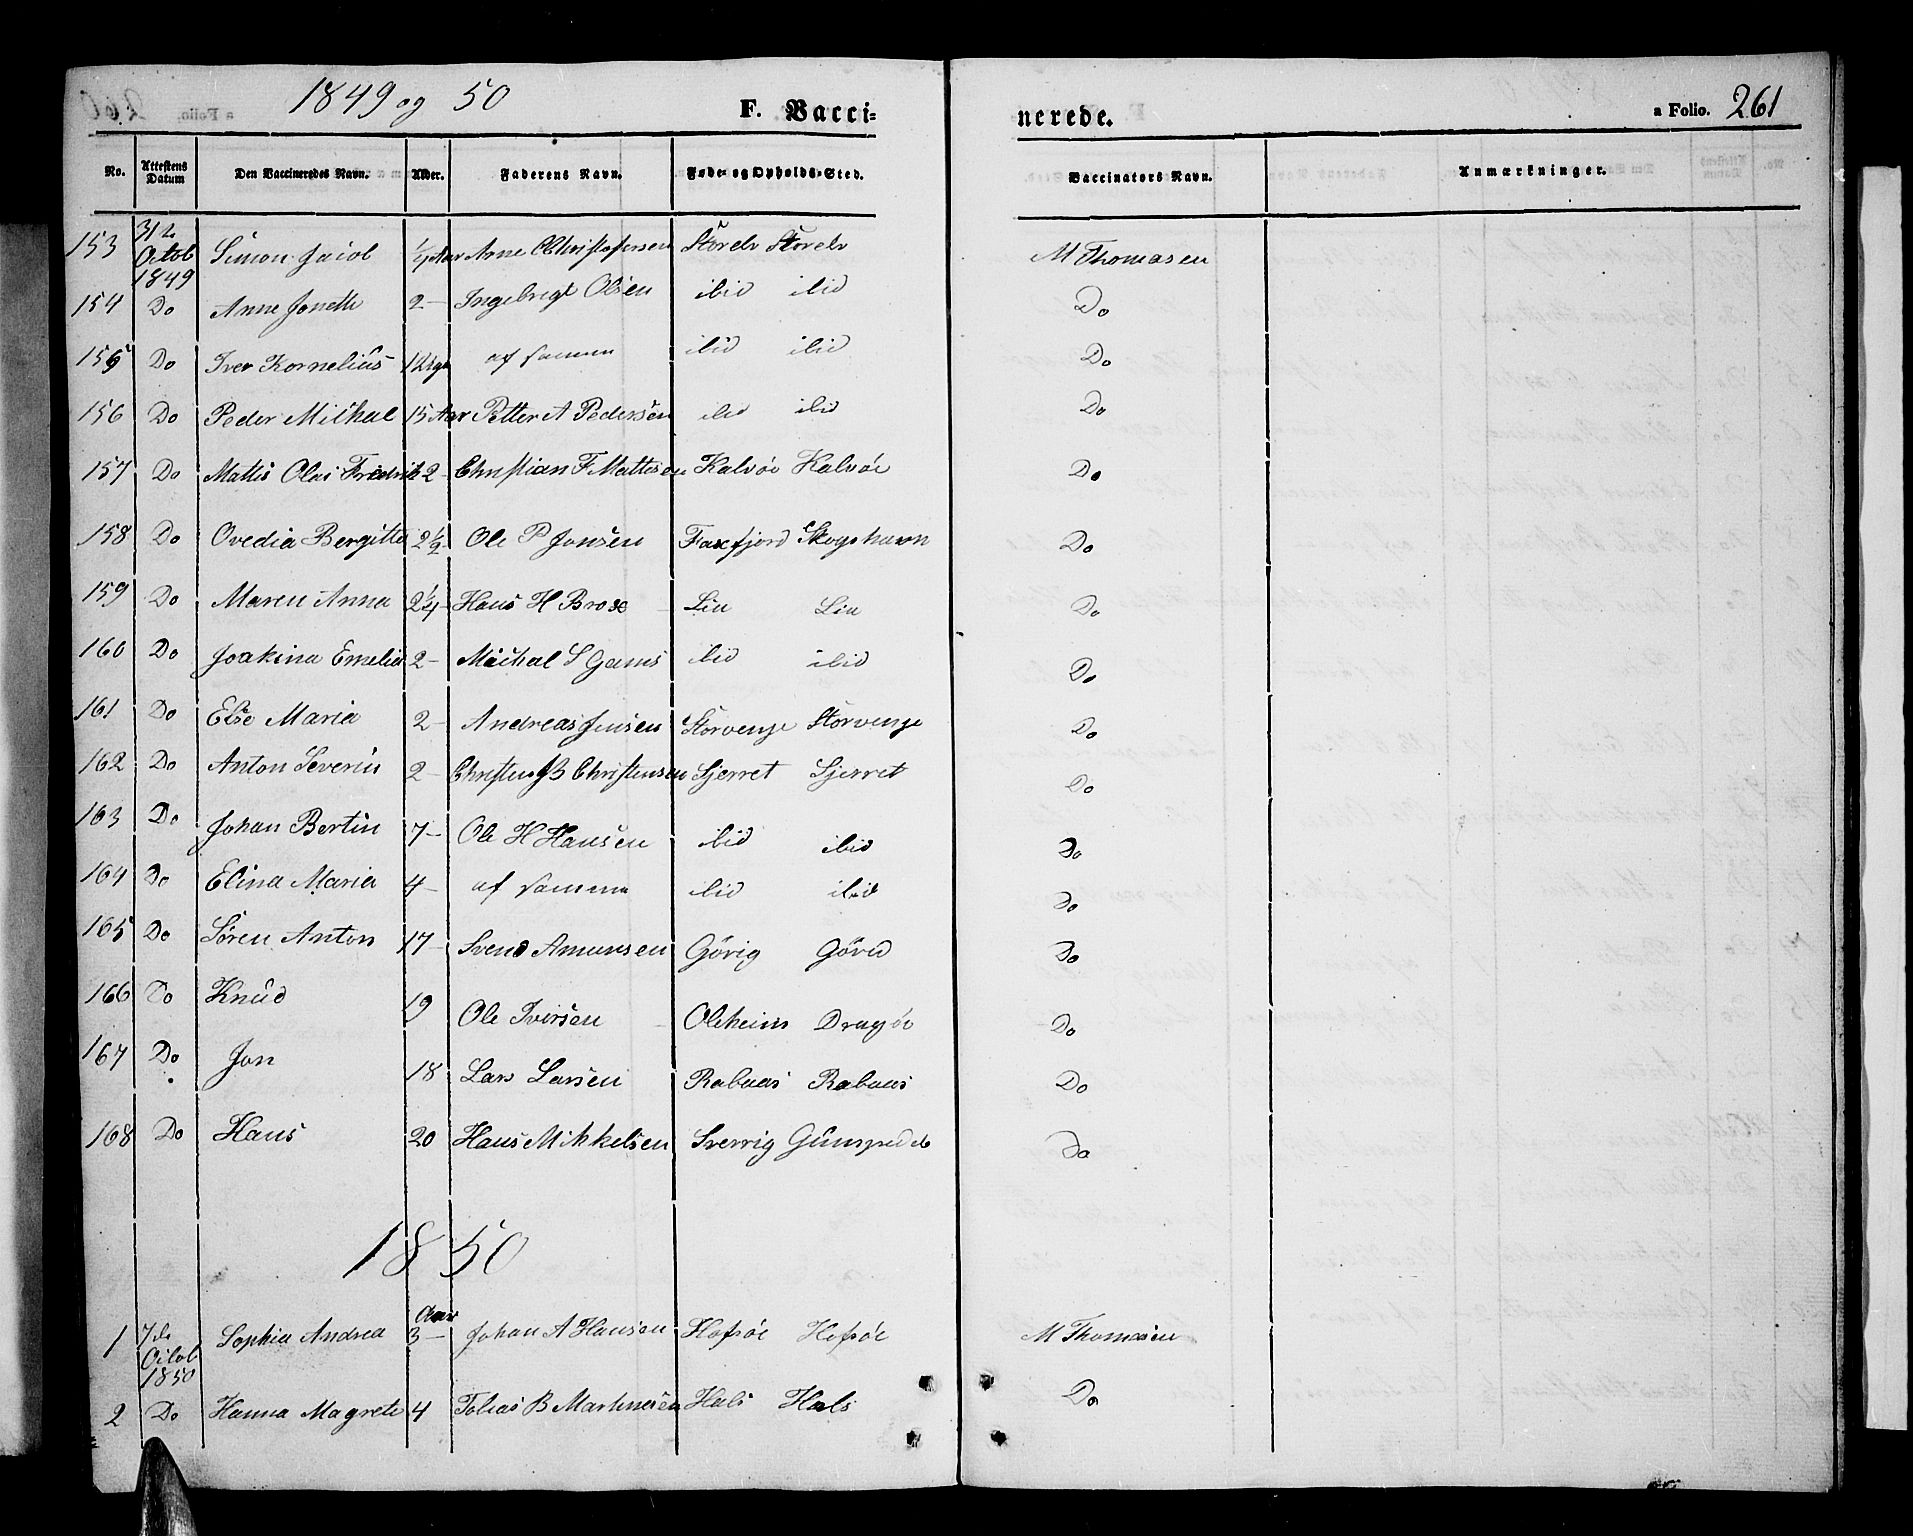 1849 og 50 F. Vacci= nerede. a Folio. 261
No. Attestens Datum Den Vaccineredes Navn. Alder. Faderens Navn. Føde- og Opholds-Sted. Vaccinators Navn. Anmærkninger.
153 31te Octob 1849 Simon Jacob Aar Arne Christofersen Storelv Storelv M Thomasen
154 Do Anne Jonette 2 – Ingebrigt Olsen ibid ibid Do
155 Do Iver Kornelius 12 af samme ibid ibid Do
156 Do Peder Michal 15 Aar Petter A Pedersen ibid ibid Do
157 Do Mattis Olai Fredrik 2 – Christian F Mattisen Kalvöe Kalvöe Do
158 Do Ovedia Bergitte 2½ – Ole P Jonsen Faxfjord Skogshavn Do
159 Do Maren Anna 2¼ – Hans H Brox Lia Lia Do
160 Do Joakina Emelia 2 – Michal S Gams ibid ibid Do
161 Do Else Maria 2 – Andreas Jensen Storvenge Storvenge Do
162 Do Anton Severin 2 – Christen B Christensen Sjerret Sjerret Do
163 Do Johan Bertin 7 – Ole H Hansen ibid ibid Do
164 Do Elina Maria 4 – af samme ibid ibid Do
165 Do Sören Anton 17 – Svend Amunsen Görig Do
166 Do Knud 19 Ole Iversen Dragöe Do
167 Do Jon 18 Lars Larsen Rabaas Rabaas Do
168 Do Hans 20 Hans Mikkelsen Sverrig Do
1850
1 7de Octob 1850 Sophia Andrea Aar 3 – Johan A Hansen Hofsöe Hofsöe M Thomasen
2 Do Hanna Magrete 4 Tobias B Martinesen Hals Hals Do